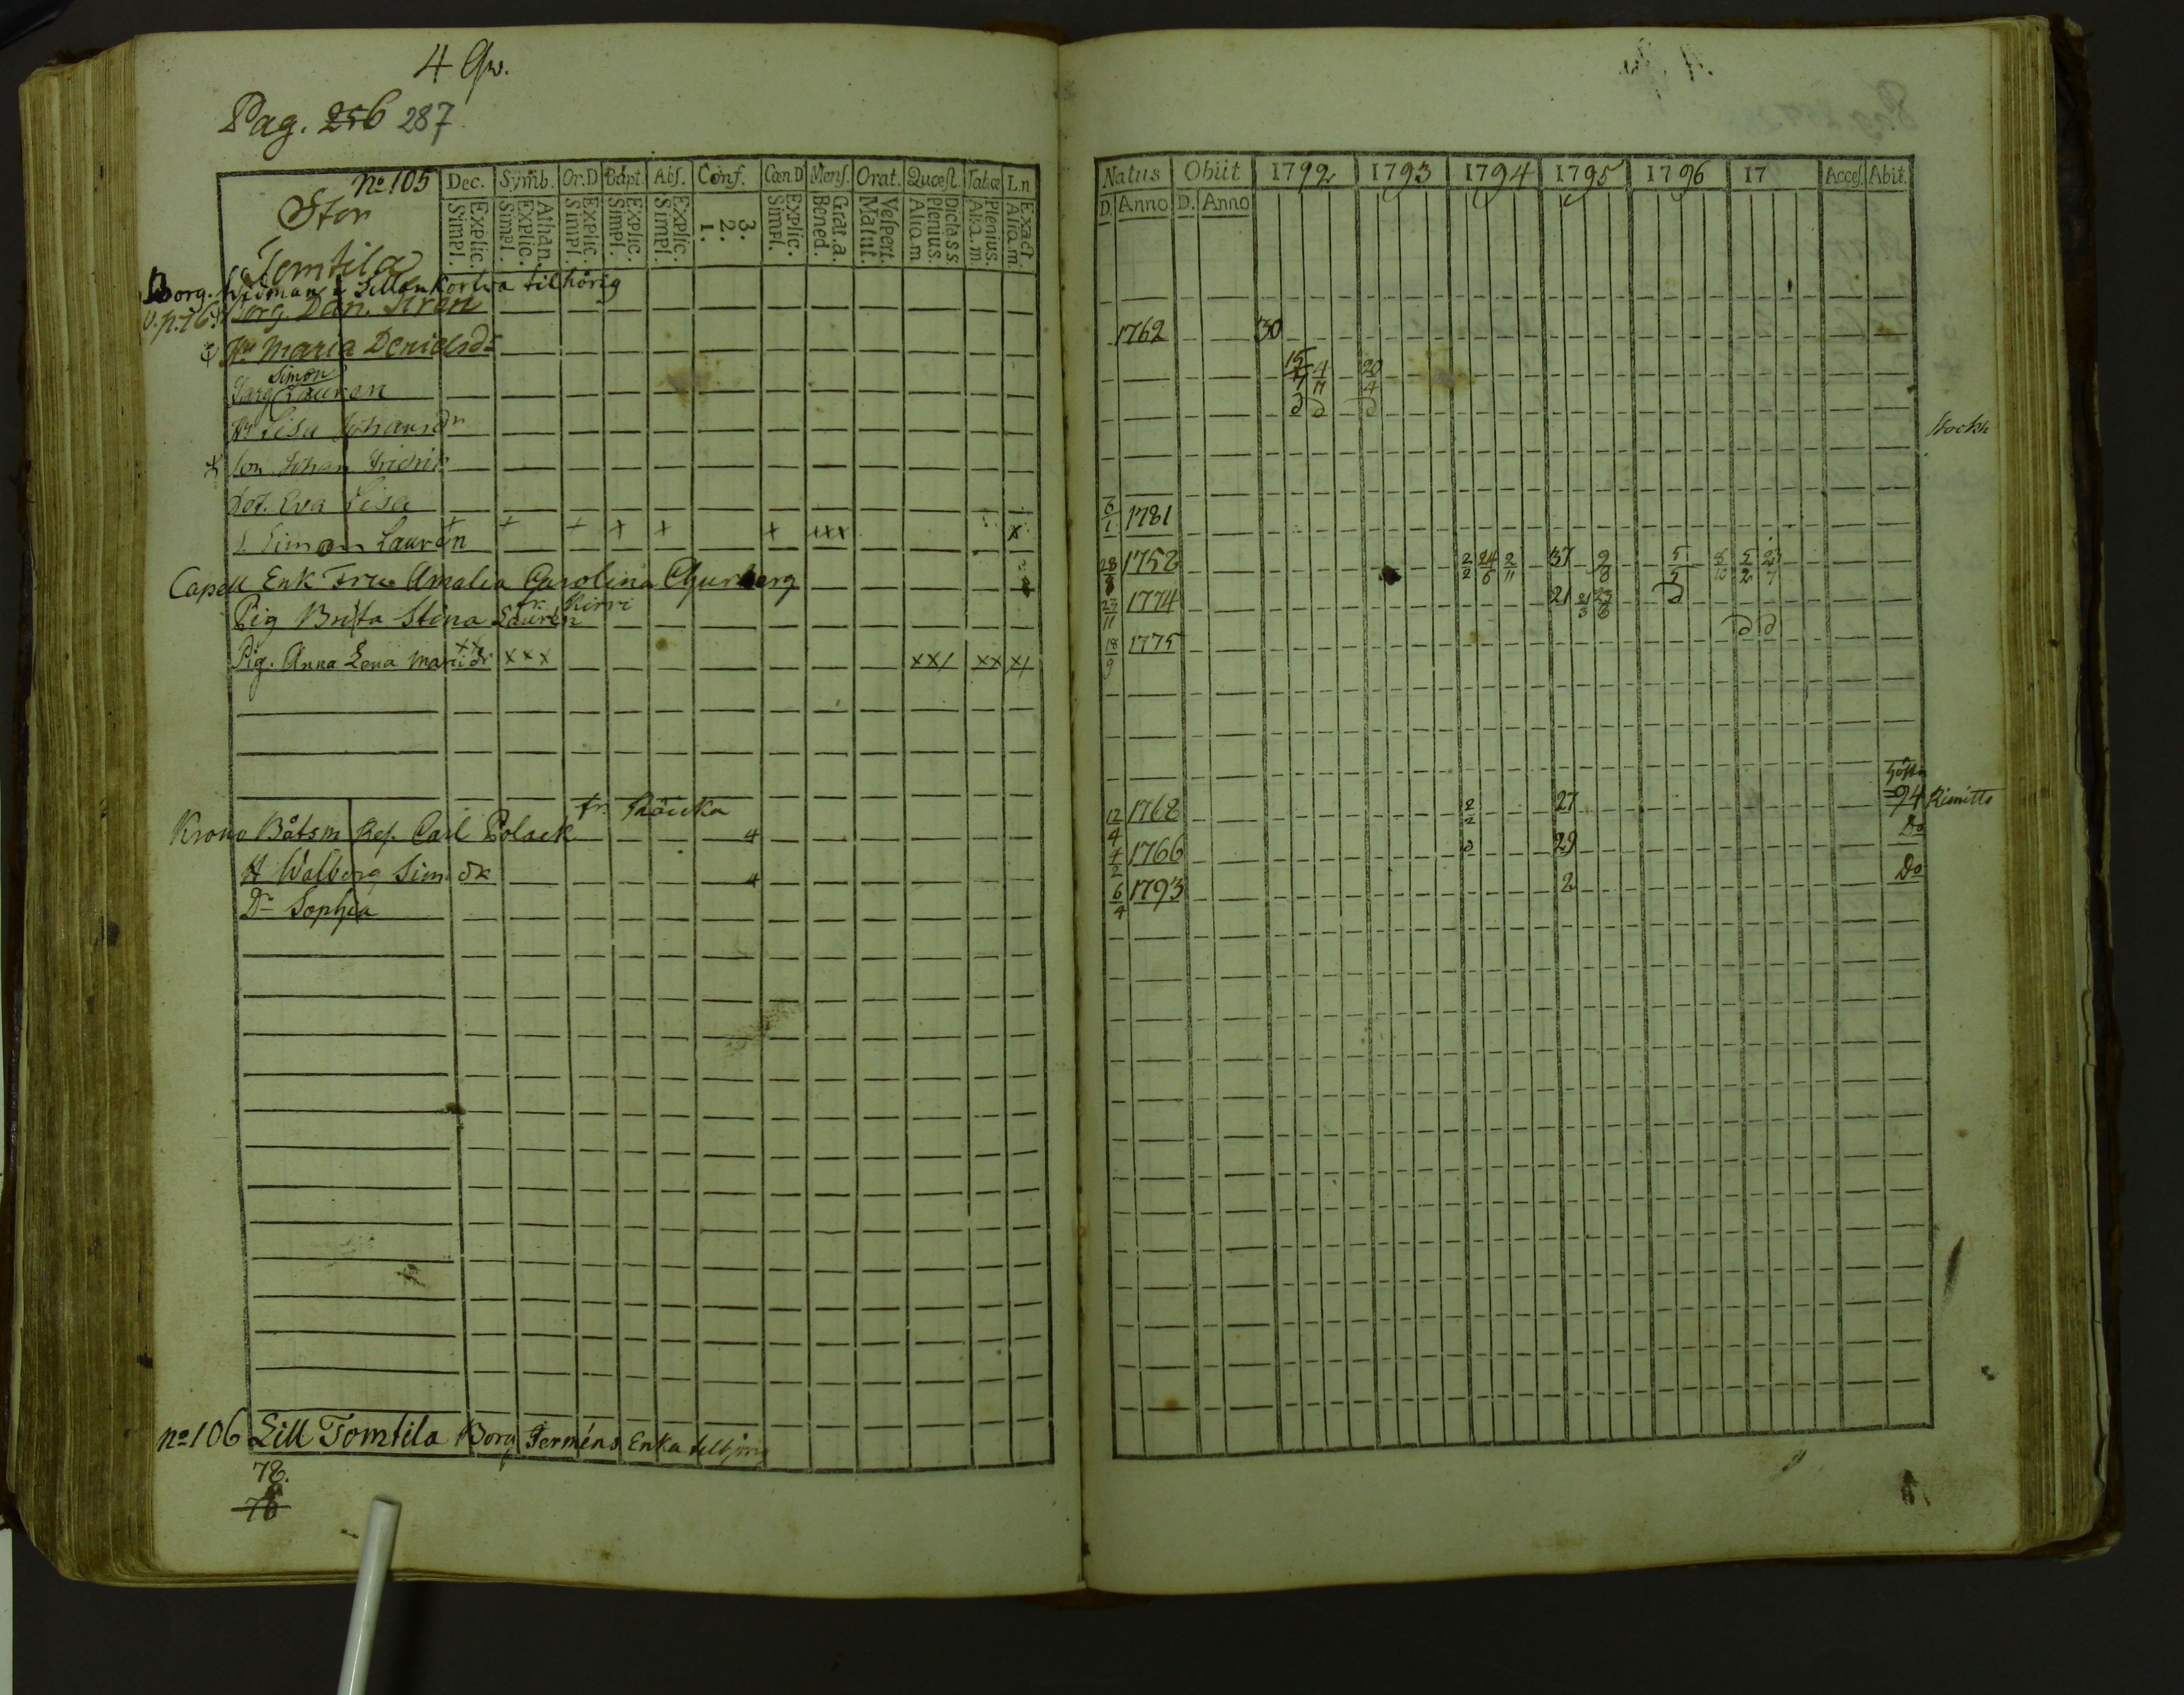 4 Qw.
Pag. 256 287
No. 105 Dec. Symb. Or.D Bapt. Abs. Conf. Cœn.D Mens. Orat. Quæst. Tabæ L.n
Stor Tomtila
Simpl. Explic. Simpl. Explic. Athan. Simpl. Explic. Simpl. Explic. Simpl. Explic. 1. 2. 3. Simpl. Explic. Bened. Grat.a. Matut. Vespert. Aliq.m Plenius. Dicta S.S. Aliq.m. Plenius. Aliq.m. Exact.
Borg. Widman i tilhörig
v.p. 76. Borg. Dan. Siren
Hu Maria Denielsdr
Simon
Lauren
Hu Lisa Johansdr
Son Johan Fridrik
Dot. Eva Lisa
S. Simon Laurén + + + + + + +++ x
Capell Enk Fru Amalia Carolina Churberg
fr. Kirri
Pig Brita Stina Laurén
Pig. Anna Lena Maridr xx xxx xx/ xx x/
fr. Rauka
Krono Båtsm Ref. Carl Polack 4
H Walborg Sim dr 4
Dr Sophia
No 106 Lill Tomtila Borg Serméns Enka tilhörig
78.
76
Natus Obiit 1792 1793 1794 1795 1796 17 Acces. Abit.
D. Anno D. Anno
1762 30
15/4 4/11 20/4
Stockh
6/1 1781
28/8 1758 2/2 24/6 2/11 37 9/8 5/5 8/10 5/2 23/7
23/11 1774 21 21/3 23/6
18/9 1775
12/4 1768 2/2 27 94 Rimitto
7/2 1766 29 Do
6/4 1793 2 Do